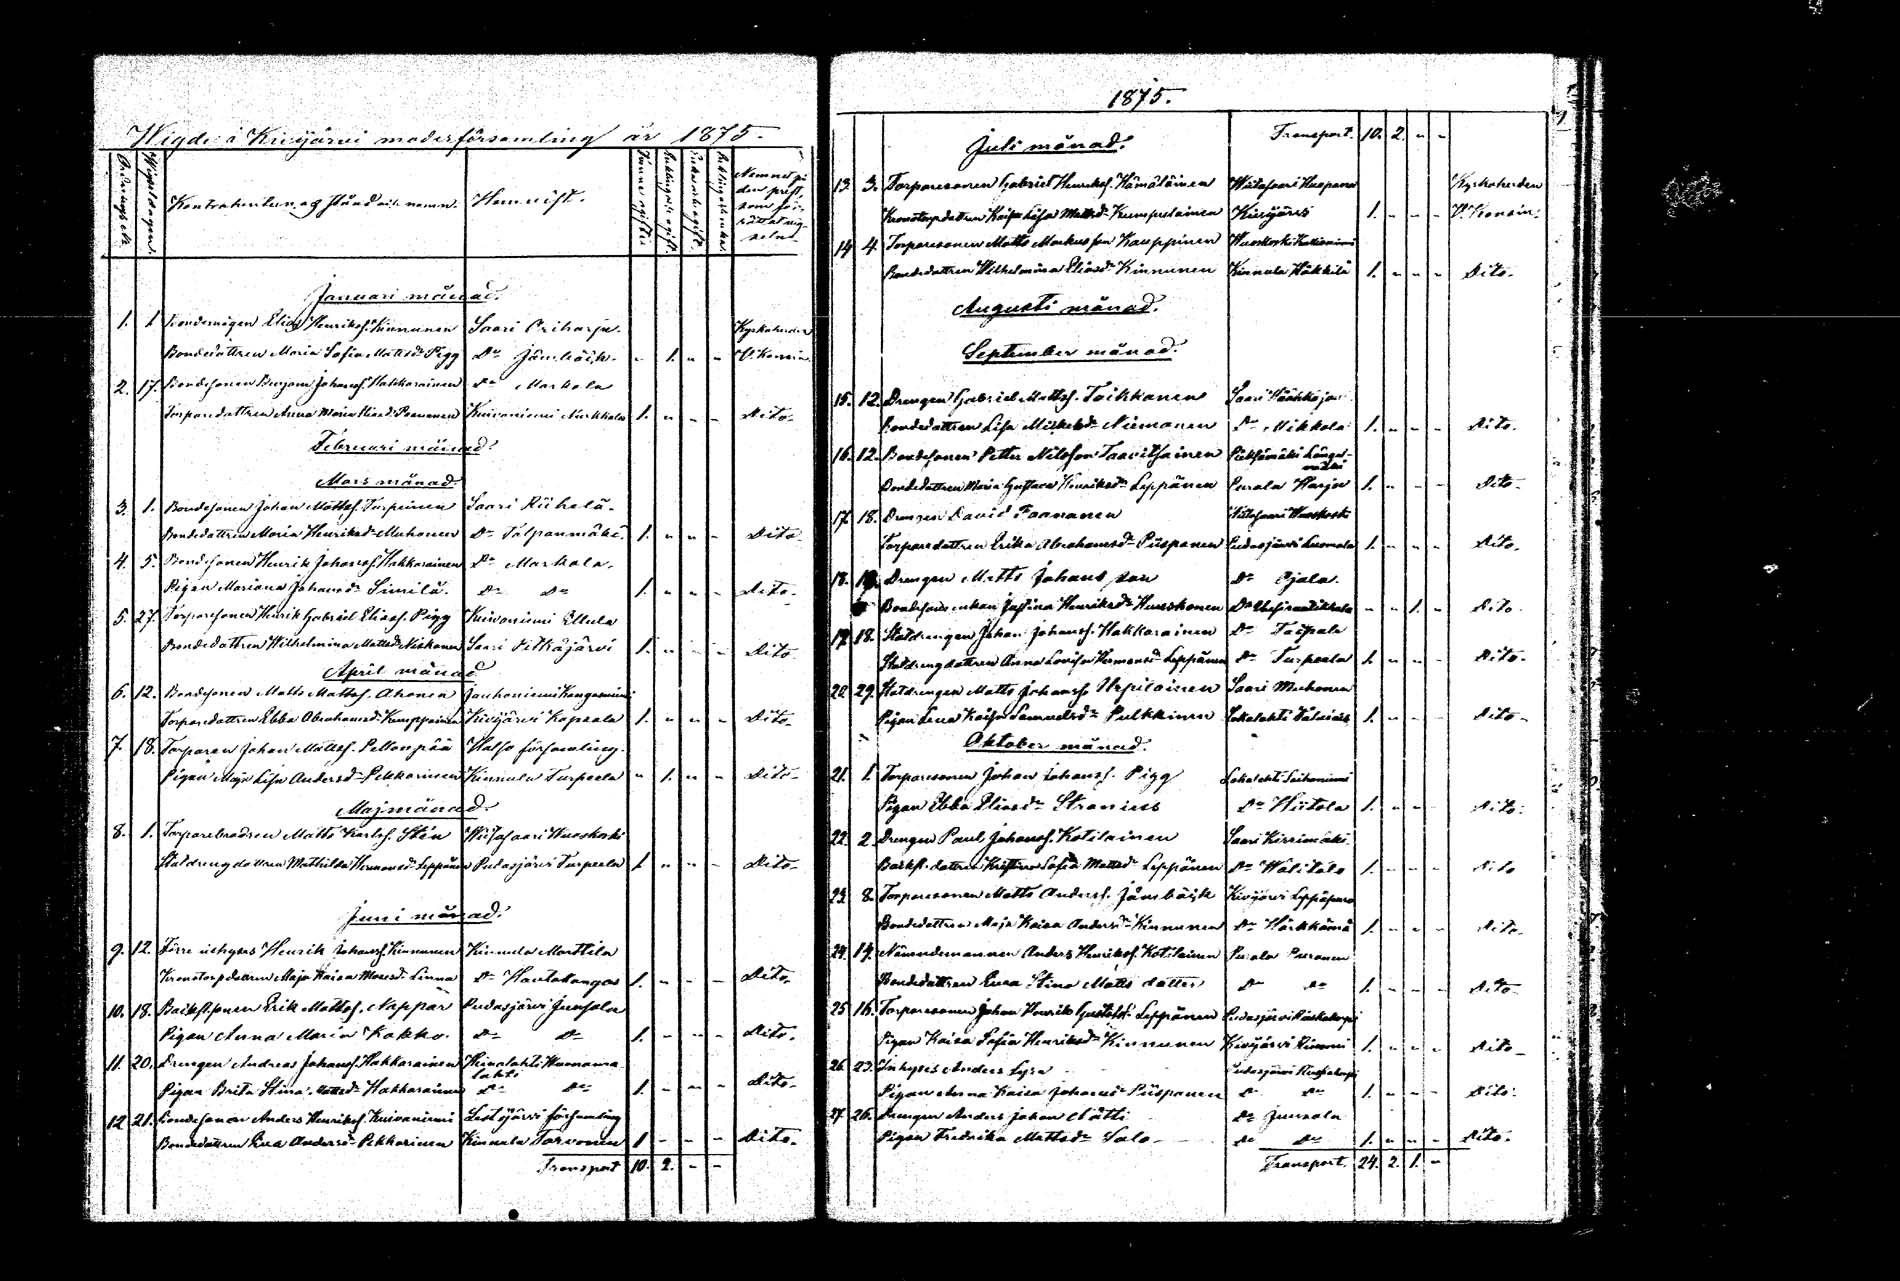 Wigde i Kivijärvi moderförsamling år 1875.
Ordnings №
Wigseldagen.
Kontrahenternas stånd och namn.
Hemvist.
Januari månad.
1. 1. Bondemågen Elias Henriksf. Kinnunen Saari Oriharju Kyrkoherden
Bondedottren Maria Sofia Mattsd:r Pigg D:o Jämbäck - 1. - - V. Kronin.
2. 17. Bondesonen Benjam Johansf. Hakkarainen D:o Markala
Torparedottren Anna Maria Eliasd: Paananen Kuivaniemi Markkala 1. - - - Dito-
Februari månad.
Mars månad
3. 1. Bondesonen Johan Mattsf. Turpeinen Saari Riihelä.
Bondedottren Maria Henriksd:r Muhonen D:o Talpanmäki. 1. - - - Dito
4. 5. Bondesonen Henrik Johansf. Hakkarainen D:o Markala.
Pigan Mariana Johansd:r Simila. D:o D:o 1. - - - Dito-
5. 27. Torparesonen Henrik Gabriel Eliasf. Pigg Kuivaniemi Ellula
Bondedottren Wilhelmina Mattsd: Niskanen Saari Pitkäjärvi 1. - - - Dito
April månad
6. 12. Bondesonen Matts Mattsf. Ahonen Jauhoniemi Kangasniemi
Torparedottren Ebba Abrahamsd:r Kumppainen Kivijärvi Kopsala 1. - - - Dito-
7. 18. Torparen Johan Mattsf. Peltonpää Halso församling.
Pigan Maja Lisa Andersd:r Pekkarinen Kinnula Turpeela - 1. - - Dito-
Maj månad.
8. 1. Torparebrodren Matts Karlsf. Stén Wiitasaari Huoskoski
Staldrengdottren Mathilda Hermansd:r Leppänen Pudasjärvi Turpeela 1 - - - Dito-
Juni månad.
9. 12. Förre inhyses Henrik Johansf. Kinnunen Kinnula Marttila
Kronotorpdottren Maja Kaisa Mosesd. Linna D:o Hautakangas 1. - - - Dito-
10. 18. Backst.sonen Erik Mattsf. Nappar Pudasjärvi Junsala
Pigan Anna Maria Kakko. D:o D:o 1. - - - Dito.
11. 20. Drengen Andreas Johansf. Hakkarainen Heinalahti
lahti
Pigan Brita Stina Mattsd:r Hakkarainen D:o D:o 1. - - - Dito-
12 21. Bondesonen Anders Henriksf. Kuivaniemi Lestijärvi församling
Bondedottren Eva Andersd:r Pekkarinen Kinnula Tarvonen 1 - - - Dito-
Transport 10. 2. - -
1875.
Transport. 10. 2. - -
Juli månad.
13. 3. Torparesonen Gabriel Henriksf. Hämäläinen Wiitasaari Kyrkoherden
Kronotorpdottren Kaisa Lisa Mattsd:r Kumpulainen Kivijärvi 1. - - - V. Kronin.
14 4. Torparesonen Matts Markusson Kauppinen
Bondedottren Wilhelmina Eliasd:r Kinnunen Kinnula Häkkilä 1. - - - Dito-
Augusti månad.
September månad.
15. 12. Drengen Gabriel Mattsf. Toikkanen Saari Hääkköjar
Bondedottren Lisa Mickelsd:r Niemonen D:o Mikkola 1. - - - Dito.
16. 12. Bondesonen Petter Nilsson Taavitsainen Pieksämäki Längel-
mäki
Bondedottren Maria Gustava Henriksd:r Leppänen Perala Harju 1. - - - Dito-
17. 18. Drengen David Paananen Wiitasaari Huoskoski
Torparedottren Erika Abrahamsd:r Piispanen Pudasjärvi Luomala 1. - - - Dito.
18. Drengen Matts Johansson D:o Ojala.
Bondesonsenkan Jostina Henriksd:r Huuskonen D:o - - 1. - Dito
19. 18. Statdrengen Johan Johansf. Hakkarainen D:o Taipale
Staldrengdottren Anna Lovisa Hermansd:r Leppänen D:o Turpeela 1. - - - Dito-
20. 29. Statdrengen Matts Johansf. Urpilainen Saari Muhonen
Pigan Lena Kaisa Samuelsd:r Pulkkinen Lokalahti 1. - - - Dito-
Oktober månad.
21. 1. Torparesonen Johan Johansf. Pigg Lokalahti
Pigan Ebba Eliasd:r Stranius D:o Hiitola 1. - - - Dito.
22. 2. Drengen Paul Johansf. Kotilainen Saari Kirrimäki
Backst. dottren Kristina Sofia Mattsd:r Leppänen D:o Wälitalo 1. - - - Dito
23. 8. Torparesonen Matts Andersf. Jämbäck Kivijärvi
Bondedottren Maja Kaisa Andersd:r Kinnunen D:o Härkkämä 1. - - - Dito-
24. 14. Nämndemannen Anders Henriksf. Kotilainen Perala Puranen
Bondedottren Eva Stina Mattsdotter D:o D:o 1. - - - Dito-
25 16. Torparesonen Johan Henrik Gustafsf. Leppänen Pudasjärvi
Pigan Kaisa Sofia Henriksd:r Kinnunen Kivijärvi 1. - - - Dito-
26. 23. Inhyses Anders Lyra Pudasjärvi
Pigan Anna Kaisa Johansd:r Piispanen D:o D:o 1. - - - Dito.
27 26. Drengen Anders Johan Nätti D:o Junsala
Pigan Fredrika Mattsd:r Salo- D:o D:o 1. - - - Dito.
Transport. 24. 2. 1. -